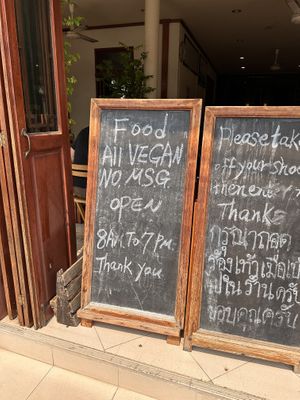 Food
All VEGAN
NO. MSG.
OPEN
8AM. To 7 PM.
Thank you
Please take
off your shoe
when enter
Thanks
กรุณาถอด
รองเท้าเมื่อเข้า
ไปในร้านครับ
ขอบคุณครับ